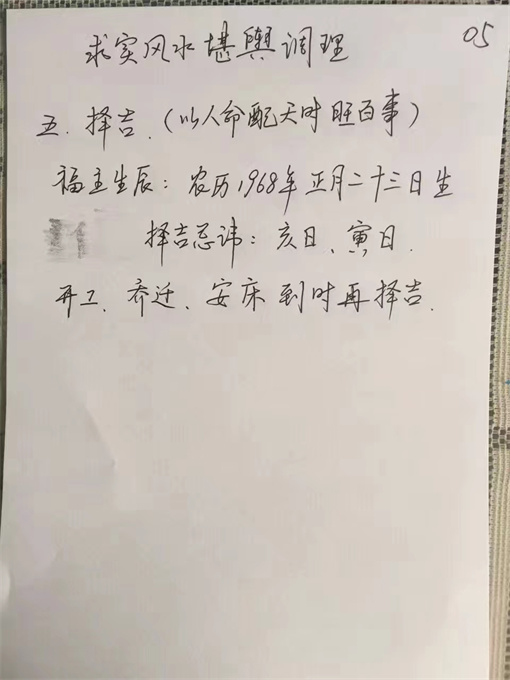 05
求实风水堪舆调理
五、择吉.（以人命配天时旺百事）
福主生辰：农历1968年正月二十三日生
择吉忌讳：亥日、寅日.
开工、乔迁、安床到时再择吉.